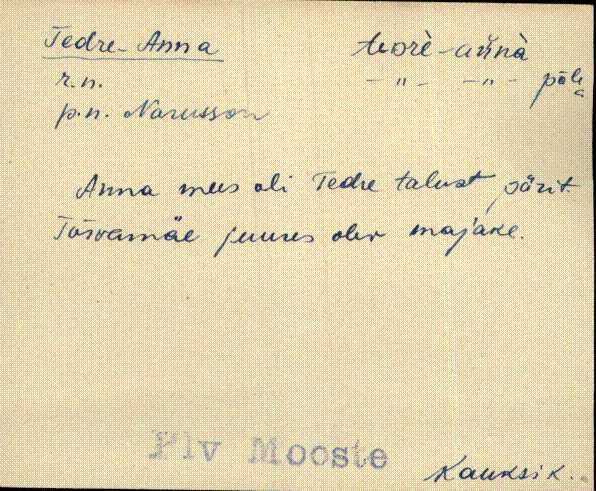 Tedre-Anna
r.n.
p.n. Narusson
-añnà
— " — — " — põle
Anna mees oli Tedre talust pärit.
juures olev majake.
Plv Mooste
Kauksi k.